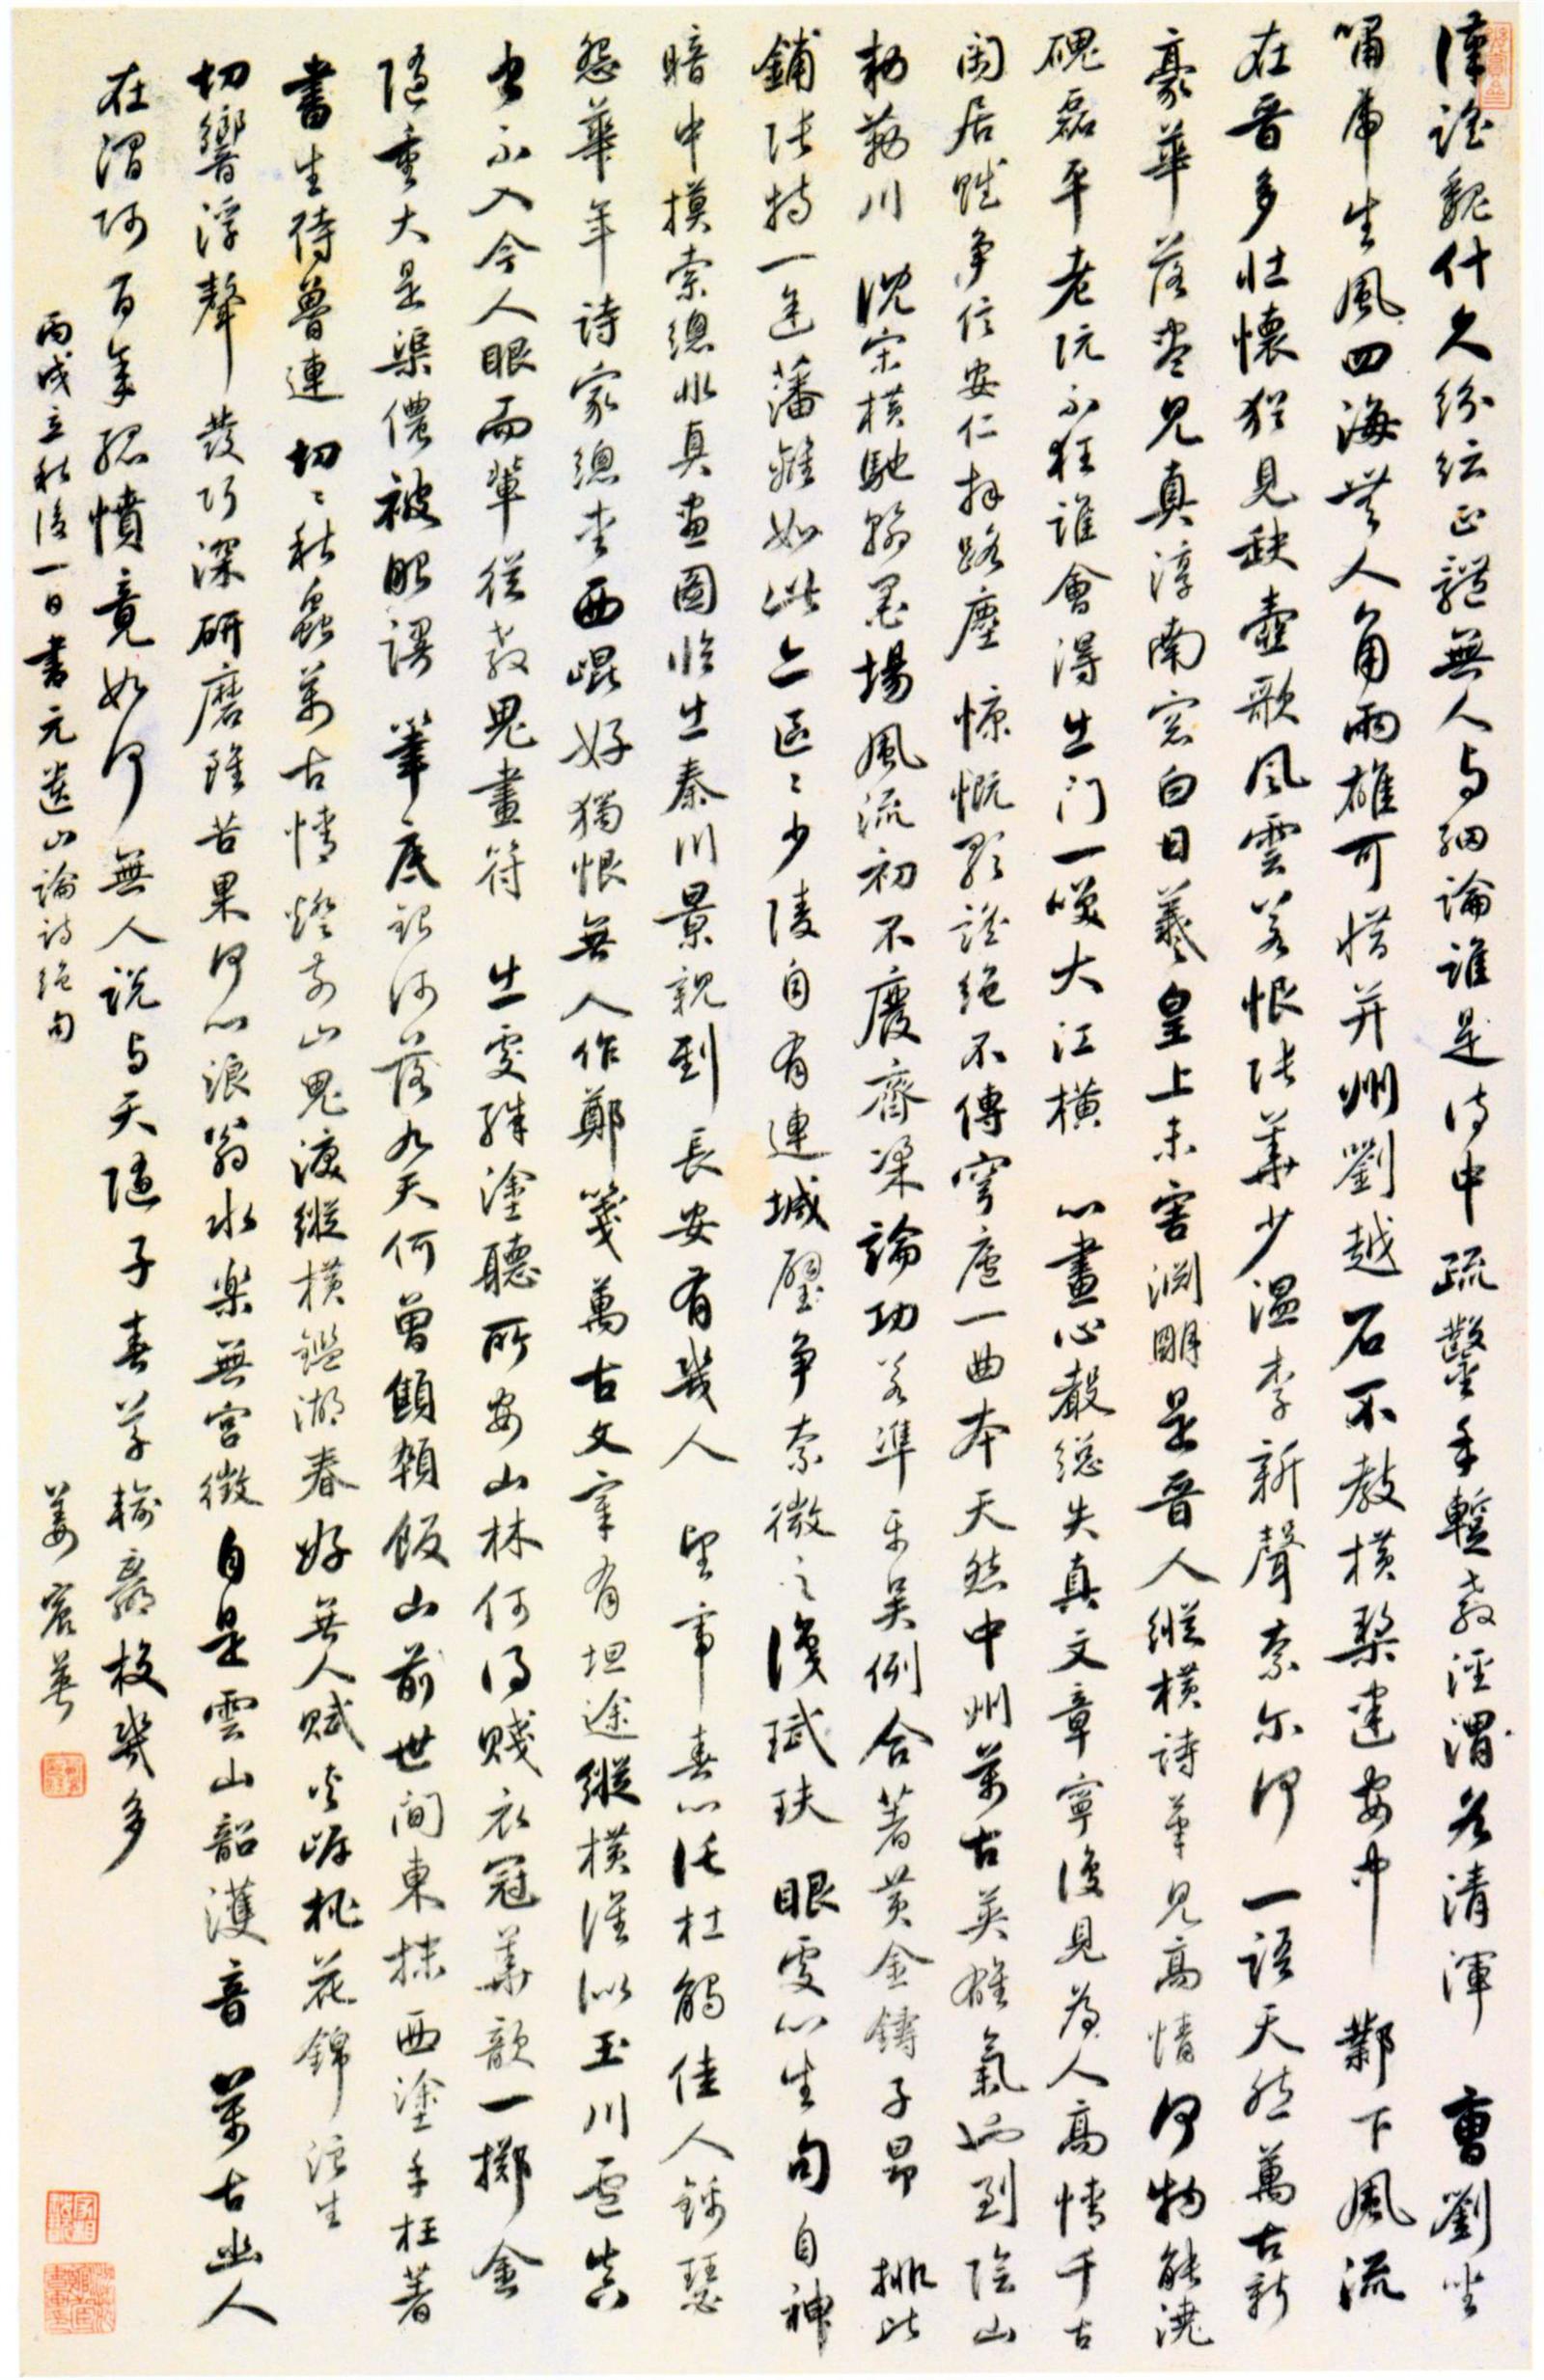 漢謠魏什久紛紜正體無人与細論誰是詩中疏鑿手暫教涇渭各清渾 曹劉坐
嘯虎生風四海無人角兩雄可惜并州劉越石不教橫槊建安中 鄴下風流
在晉多壯懷猶見缺壺歌風雲若恨張華少溫李新聲奈尔何 一語天然萬古新
豪華落盡見真淳南窗白日羲皇上未害淵明是晉人 縱橫詩筆見高情何物能澆
磈磊平老阮不狂誰會得出门一嘆大江橫 心畫心聲總失真文章寧復見為人高情千古
閑居賦爭信安仁拜路塵 慷慨歌謠絕不傳穹廬一曲本天然中州萬古英雄氣也到陰山
勑勒川 沈宋橫馳翰墨場風流初不廢齊梁論功若準平吳例合著黃金鑄子昂 排比
鋪張特一途藩籬如此亦區〻少陵自有連城璧爭奈微之識碔玞 眼處心生句自神
暗中摸索總非真畫圖臨出秦川景親到長安有幾人 望帝春心託杜鵑佳人錦瑟
怨華年詩家總愛西崐好獨恨無人作鄭箋 萬古文章有坦途縱橫誰似玉川盧真
書不入今人眼兒輩從教鬼畫符 出處殊塗聽所安山林何得賤衣冠華歆一擲金
隨重大是渠儂被眼謾 筆底銀河落九天何曾顦顇飯山前世間東抹西塗手枉著
書生待魯連 切〻秋蟲萬古情燈前山鬼淚縱橫鑑湖春好無人賦夾岸桃花錦浪生
切響浮聲發巧深研磨雖苦果何心浪翁水樂無宮徵自是雲山韶濩音 萬古幽人
在澗阿百年孤憤竟如何無人說与天隨子春草輸贏校幾多
丙戌立秋後一日書元遺山論詩絕句
姜宸英